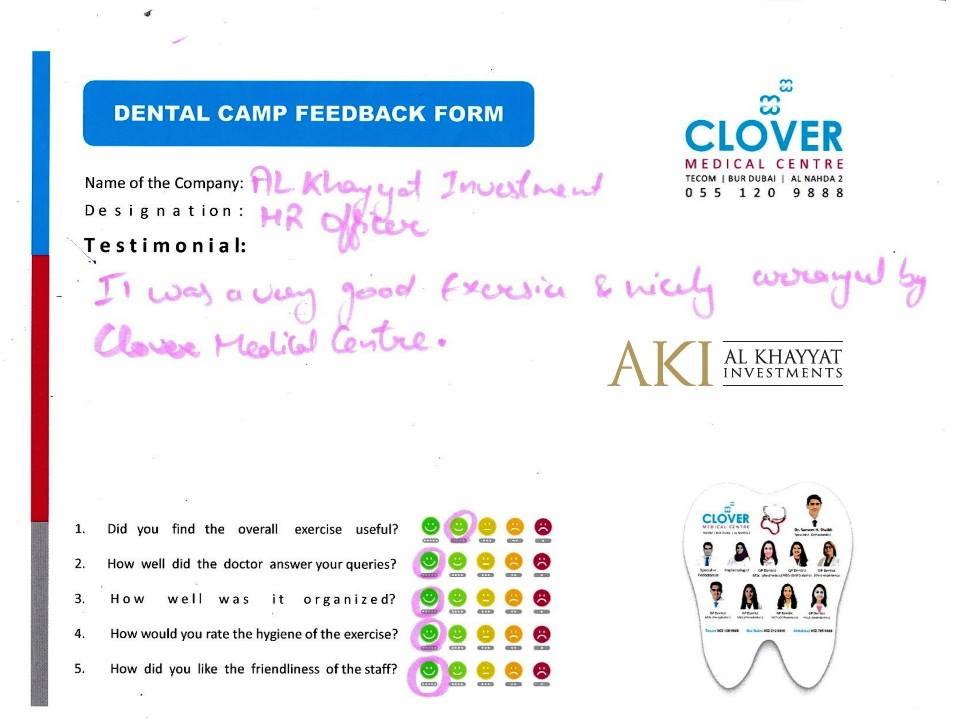 DENTAL CAMP FEEDBACK FORM
CLOVER
MEDICAL CENTRE
TECOM | BUR DUBAI | AL NAHDA 2
055 120 9888
Name of the Company: AL Khayyat Investment
Designation: HR Officer
Testimonial:
It was a very good Exersice & nicely arranged by
Clover Medical Centre.
AKI AL KHAYYAT
INVESTMENTS
1. Did you find the overall exercise useful?
2. How well did the doctor answer your queries?
3. How well was it organized?
4. How would you rate the hygiene of the exercise?
5. How did you like the friendliness of the staff?
CLOVER
MEDICAL CENTRE